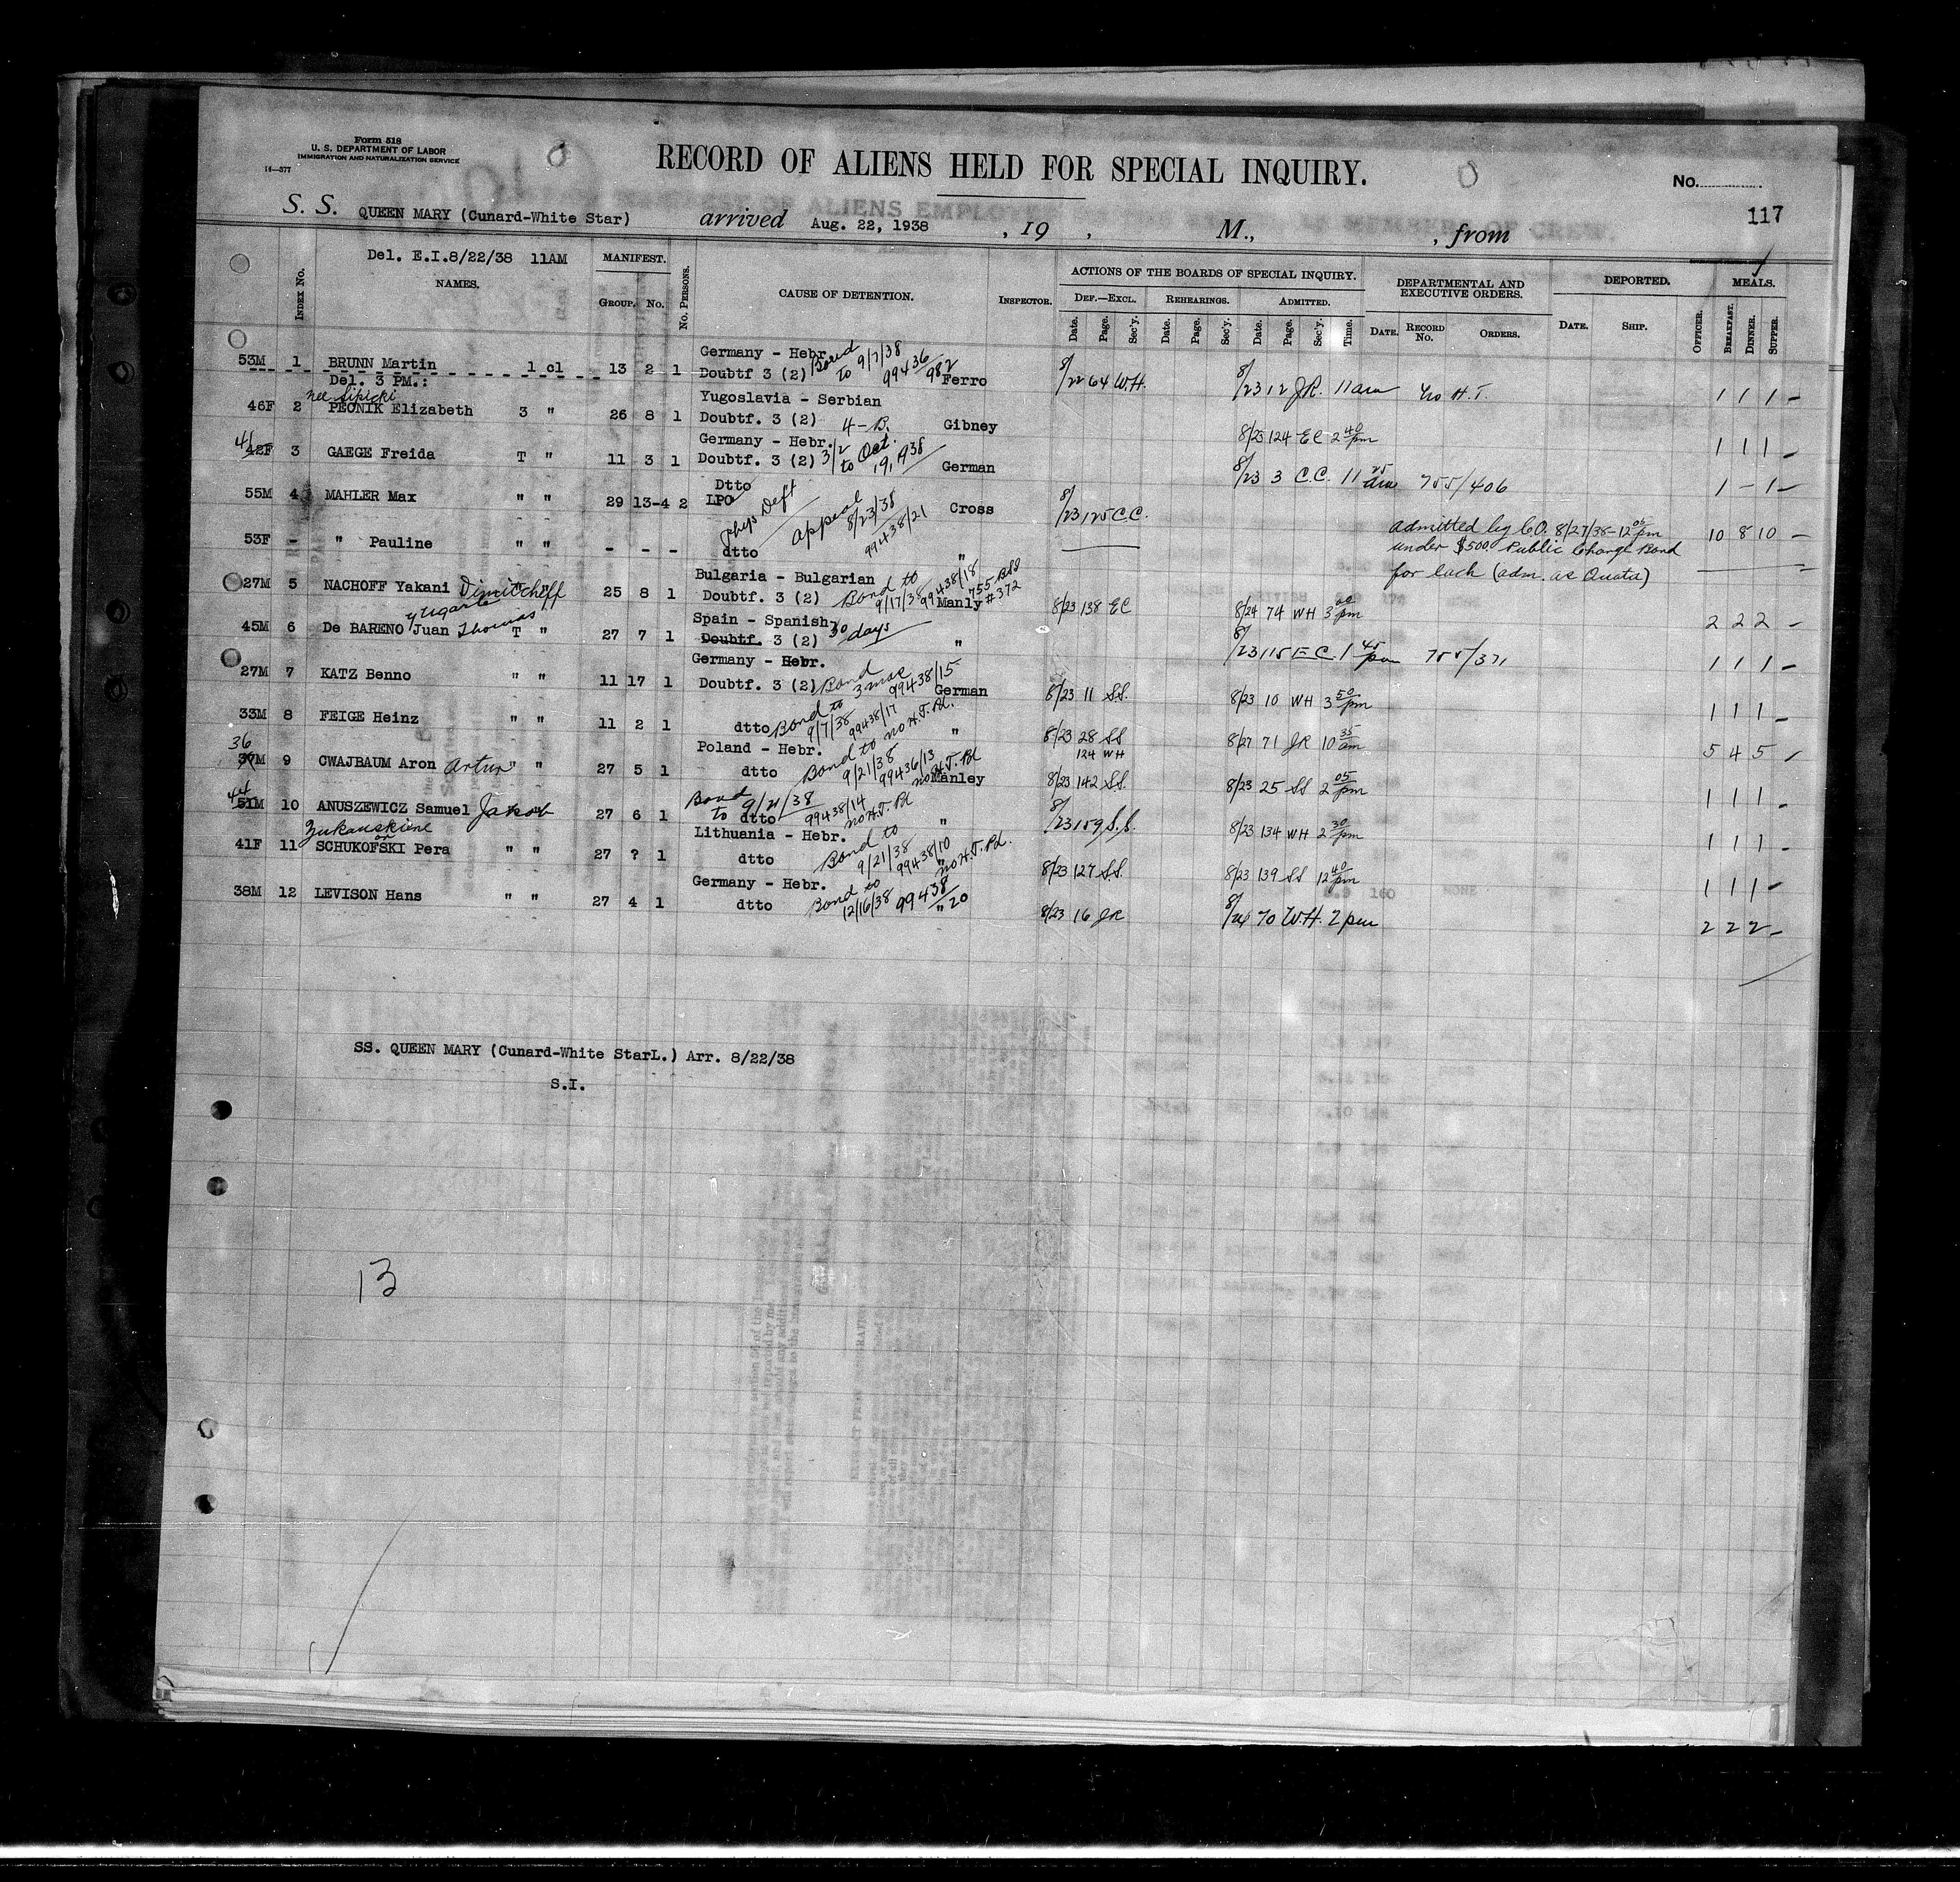 Form 518
U. S. DEPARTMENT OF LABOR
IMMIGRATION AND NATURALIZATION SERVICE
14—377
RECORD OF ALIENS HELD FOR SPECIAL INQUIRY.
No.
117
S. S. QUEEN MARY (Cunard-White Star) arrived Aug. 22, 1938 , 19 , M., , from
Del. E.I.8/22/38 11AM
INDEX No. NAMES. MANIFEST. GROUP. No. No. PERSONS. CAUSE OF DETENTION. INSPECTOR. ACTIONS OF THE BOARDS OF SPECIAL INQUIRY. DEPARTMENTAL AND EXECUTIVE ORDERS. DEPORTED. MEALS.
DEF.—EXCL. REHEARINGS. ADMITTED.
Date. Page. Sec'y. Date. Page. Sec'y. Date. Page. Sec'y. Time. DATE. RECORD No. ORDERS. DATE. SHIP. OFFICER. BREAKFAST. DINNER. SUPPER.
Germany - Hebr.
53M 1 BRUNN Martin 1 cl 13 2 1 Doubtf 3 (2) Bond to 9/7/38 99436/982 Ferro 8/22 64 W.H. 8/23 12 JR. 11am no H.T. 1 1 1 –
Del. 3 PM.:
nee
Yugoslavia - Serbian
46F 2 PEONIK Elizabeth 3 " 26 8 1 Doubtf. 3 (2) 4-B. Gibney 8/23 124 EC 2 40 pm 1 1 1 –
Germany - Hebr.
41 42F 3 GAEGE Freida T " 11 3 1 Doubtf. 3 (2) 3/2 to Oct. 19, 1938 German 8/23 3 C.C. 11 25 am 755/406 1 – 1 –
Dtto
55M 4 MAHLER Max " " 29 13-4 2 LPC Phys Deft Appeal 8/23/38 99438/21 Cross 8/23 125 C.C.
admitted by C.O. 8/27/38-12 05 pm 10 8 10 –
under $500 Public Charge Bond
for each (adm. as Quota)
53F - " Pauline " " - - - dtto "
Bulgaria - Bulgarian
27M 5 NACHOFF Yakani Dimitcheff " 25 8 1 Doubtf. 3 (2) Bond to 9/17/38 99438/18 755 BSS #372 Manly 8/23 138 EC 8/24 74 WH 3 00 pm 2 2 2 –
y Ugarte
Spain - Spanish
45M 6 De BARENO Juan Thomas T " 27 7 1 Doubtf. 3 (2) 30 days " 8/23 115 E.C. 1 45 pm 755/371 1 1 1 –
Germany - Hebr.
27M 7 KATZ Benno " " 11 17 1 Doubtf. 3 (2) Bond 3 mos 99438/15 German 8/23 11 SS. 8/23 10 WH 3 50 pm 1 1 1 –
33M 8 FEIGE Heinz " " 11 2 1 dtto Bond to 9/7/38 99438/17 no H.T. Pd. " 8/23 28 SS 124 WH 8/27 71 JR 10 35 am 5 4 5 –
Poland - Hebr.
36 37M 9 CWAJBAUM Aron Artur " " 27 5 1 dtto Bond to 9/21/38 99436/13 no H.T. Pd Manley 8/23 142 SS. 8/23 25 SS 2 05 pm 1 1 1 –
44 51M 10 ANUSZEWICZ Samuel Jakob 27 6 1 dtto Bond to 9/21/38 99438/14 no H.T. Pd " 8/23 159 S.S. 8/23 134 WH 2 30 pm 1 1 1 –
Zukauskiene or
Lithuania - Hebr.
41F 11 SCHUKOFSKI Pera " " 27 ? 1 dtto Bond to 9/21/38 99438/10 no H.T. Pd. " 8/23 127 SS. 8/23 139 SS 12 40 pm 1 1 1 –
Germany - Hebr.
38M 12 LEVISON Hans " " 27 4 1 dtto Bond to 12/16/38 99438/20 " 8/23 16 JR 8/24 70 W.H. 2 pm 2 2 2 –
SS. QUEEN MARY (Cunard-White StarL.) Arr. 8/22/38
S.I.
13